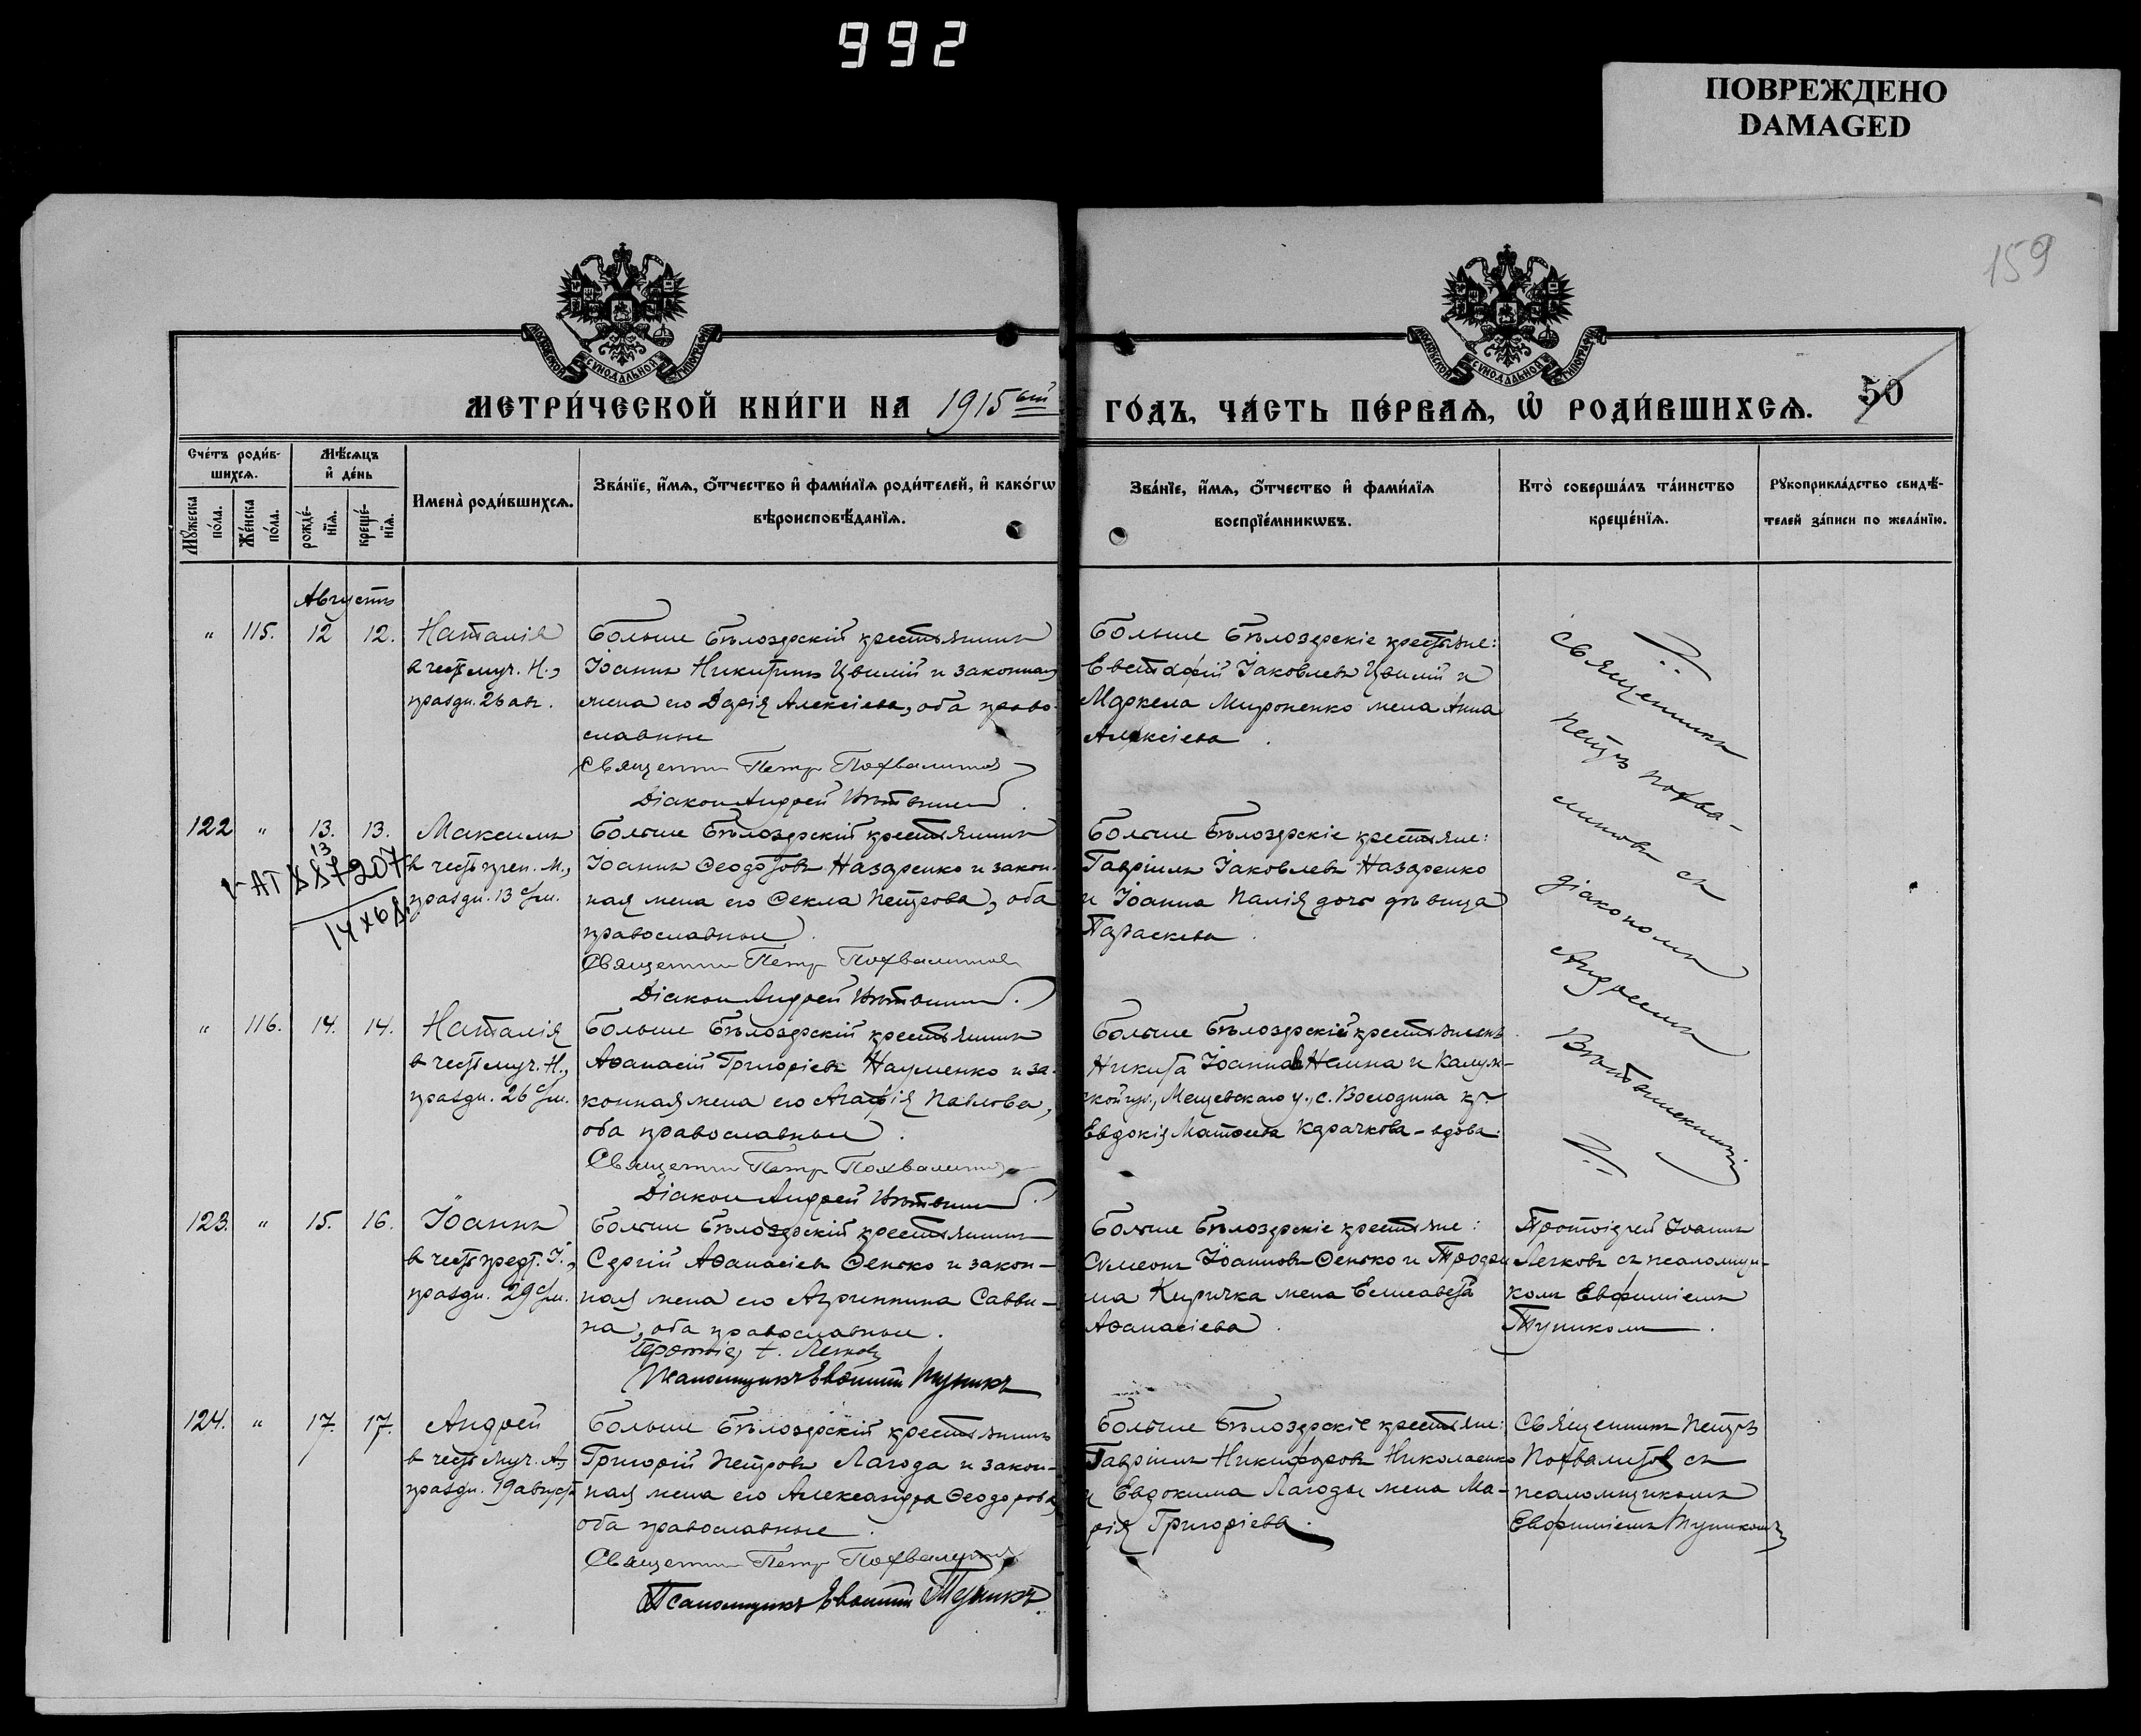 992
ПОВРЕЖДЕНО
DAMAGED
159
МЕТРИ́ЧЕСКОЙ КНИ́ГИ НА 1915ый
ГО́ДЪ, ЧА́СТЬ ПЕ́РВАѦ, Ѽ РОДИ́ВШИХСѦ.
50
Сче́тъ роди́в-
шихсѧ.
Мѣ́сѧцъ
и҆ де́нь
Мꙋ́жеска по́ла.
Же́нска по́ла.
рожде́-нїѧ.
креще́-нїѧ.
Имена̀ роди́вшихсѧ.
Зва́нїе, и҆́мѧ, ѻ҆́тчество и҆ фами́лїѧ роди́телей, и҆ како́гѡ
вѣроисповѣ́данїѧ.
Зва́нїе, и҆́мѧ, ѻ҆́тчество и҆ фами́лїѧ
воспрїе́мникѡвъ.
Кто̀ соверша́лъ та́инство
креще́нїѧ.
Рꙋкоприкла́дство свидѣ́-
телей за́писи по жела́нїю.
Августъ
" 115. 12 12. Наталія
в честь муч. Н.,
праздн. 26 авг.
Больше Бѣлозерскій крестьянинъ
Іоаннъ Никитинъ Цвилій и законная
жена его Дарія Алексіева, оба право-
славные
Священникъ Петръ Похвалитовъ
Діаконъ Андрей
Больше Бѣлозерскіе крестьяне:
Евстафій Іаковлевъ Цвилій и
Маркела Мироненко жена Анна
Алексіева.
Священникъ
Петръ Похва-
литовъ съ
діакономъ
Андреемъ
122 " 13. 13. Максимъ
в честь преп. М.,
праздн. 13 с/м.
13
Больше Бѣлозерскій крестьянинъ
Іоаннъ Ѳеодотовъ Назаренко и закон-
ная жена его Ѳекла Петрова, оба
православные.
Священникъ Петръ Похвалитовъ
Діаконъ Андрей
Больше Бѣлозерскіе крестьяне:
Гавріилъ Іаковлевъ Назаренко
и Іоанна Палія дочь дѣвица
Параскева.
" 116. 14. 14. Наталія
в честь муч. Н.,
праздн. 26 с/м.
Больше Бѣлозерскій крестьянинъ
Аѳанасій Григоріевъ Науменко и за-
конная жена его Агафія Павлова,
оба православные.
Священникъ Петръ Похвалитовъ
Діаконъ Андрей
Больше Бѣлозерскій крестьянинъ
Никита Іоанновъ и Калуж-
ской губ., Мещевскаго у., с. Володина кр.
Евдокія Матѳеева Карачкова - вдова.
123. " 15. 16. Іоаннъ
в честь предт. І.,
праздн. 29 с/м.
Больше Бѣлозерскій крестьянинъ
Сергій Аѳанасіевъ Ѳенько и закон-
ная жена его Агриппина Савви-
на, оба православные.
Протоіер. І. Легковъ
Псаломщикъ Евѳимій Тупикъ
Больше Бѣлозерскіе крестьяне:
Симеонъ Іоанновъ Ѳенько и
Киричка жена Елисавета
Аѳанасіева.
Протоіерей Іоаннъ
Легковъ съ псаломщи-
комъ Евфиміемъ
Тупикомъ.
124. " 17. 17. Андрей
в честь муч. А.,
праздн. 19 августа
Больше Бѣлозерскій крестьянинъ
Григорій Петровъ Лагода и закон-
ная жена его Александра Ѳеодорова,
оба православные.
Священникъ Петръ Похвалитовъ
Псаломщикъ Евѳимій Тупикъ.
Больше Бѣлозерскіе крестьяне:
Гавріилъ Никифоровъ Николаенко
и Евдокима Лагоды жена Ма-
рія Григоріева.
Священникъ Петръ
Похвалитовъ съ
псаломщикомъ
Евфиміемъ Тупикомъ